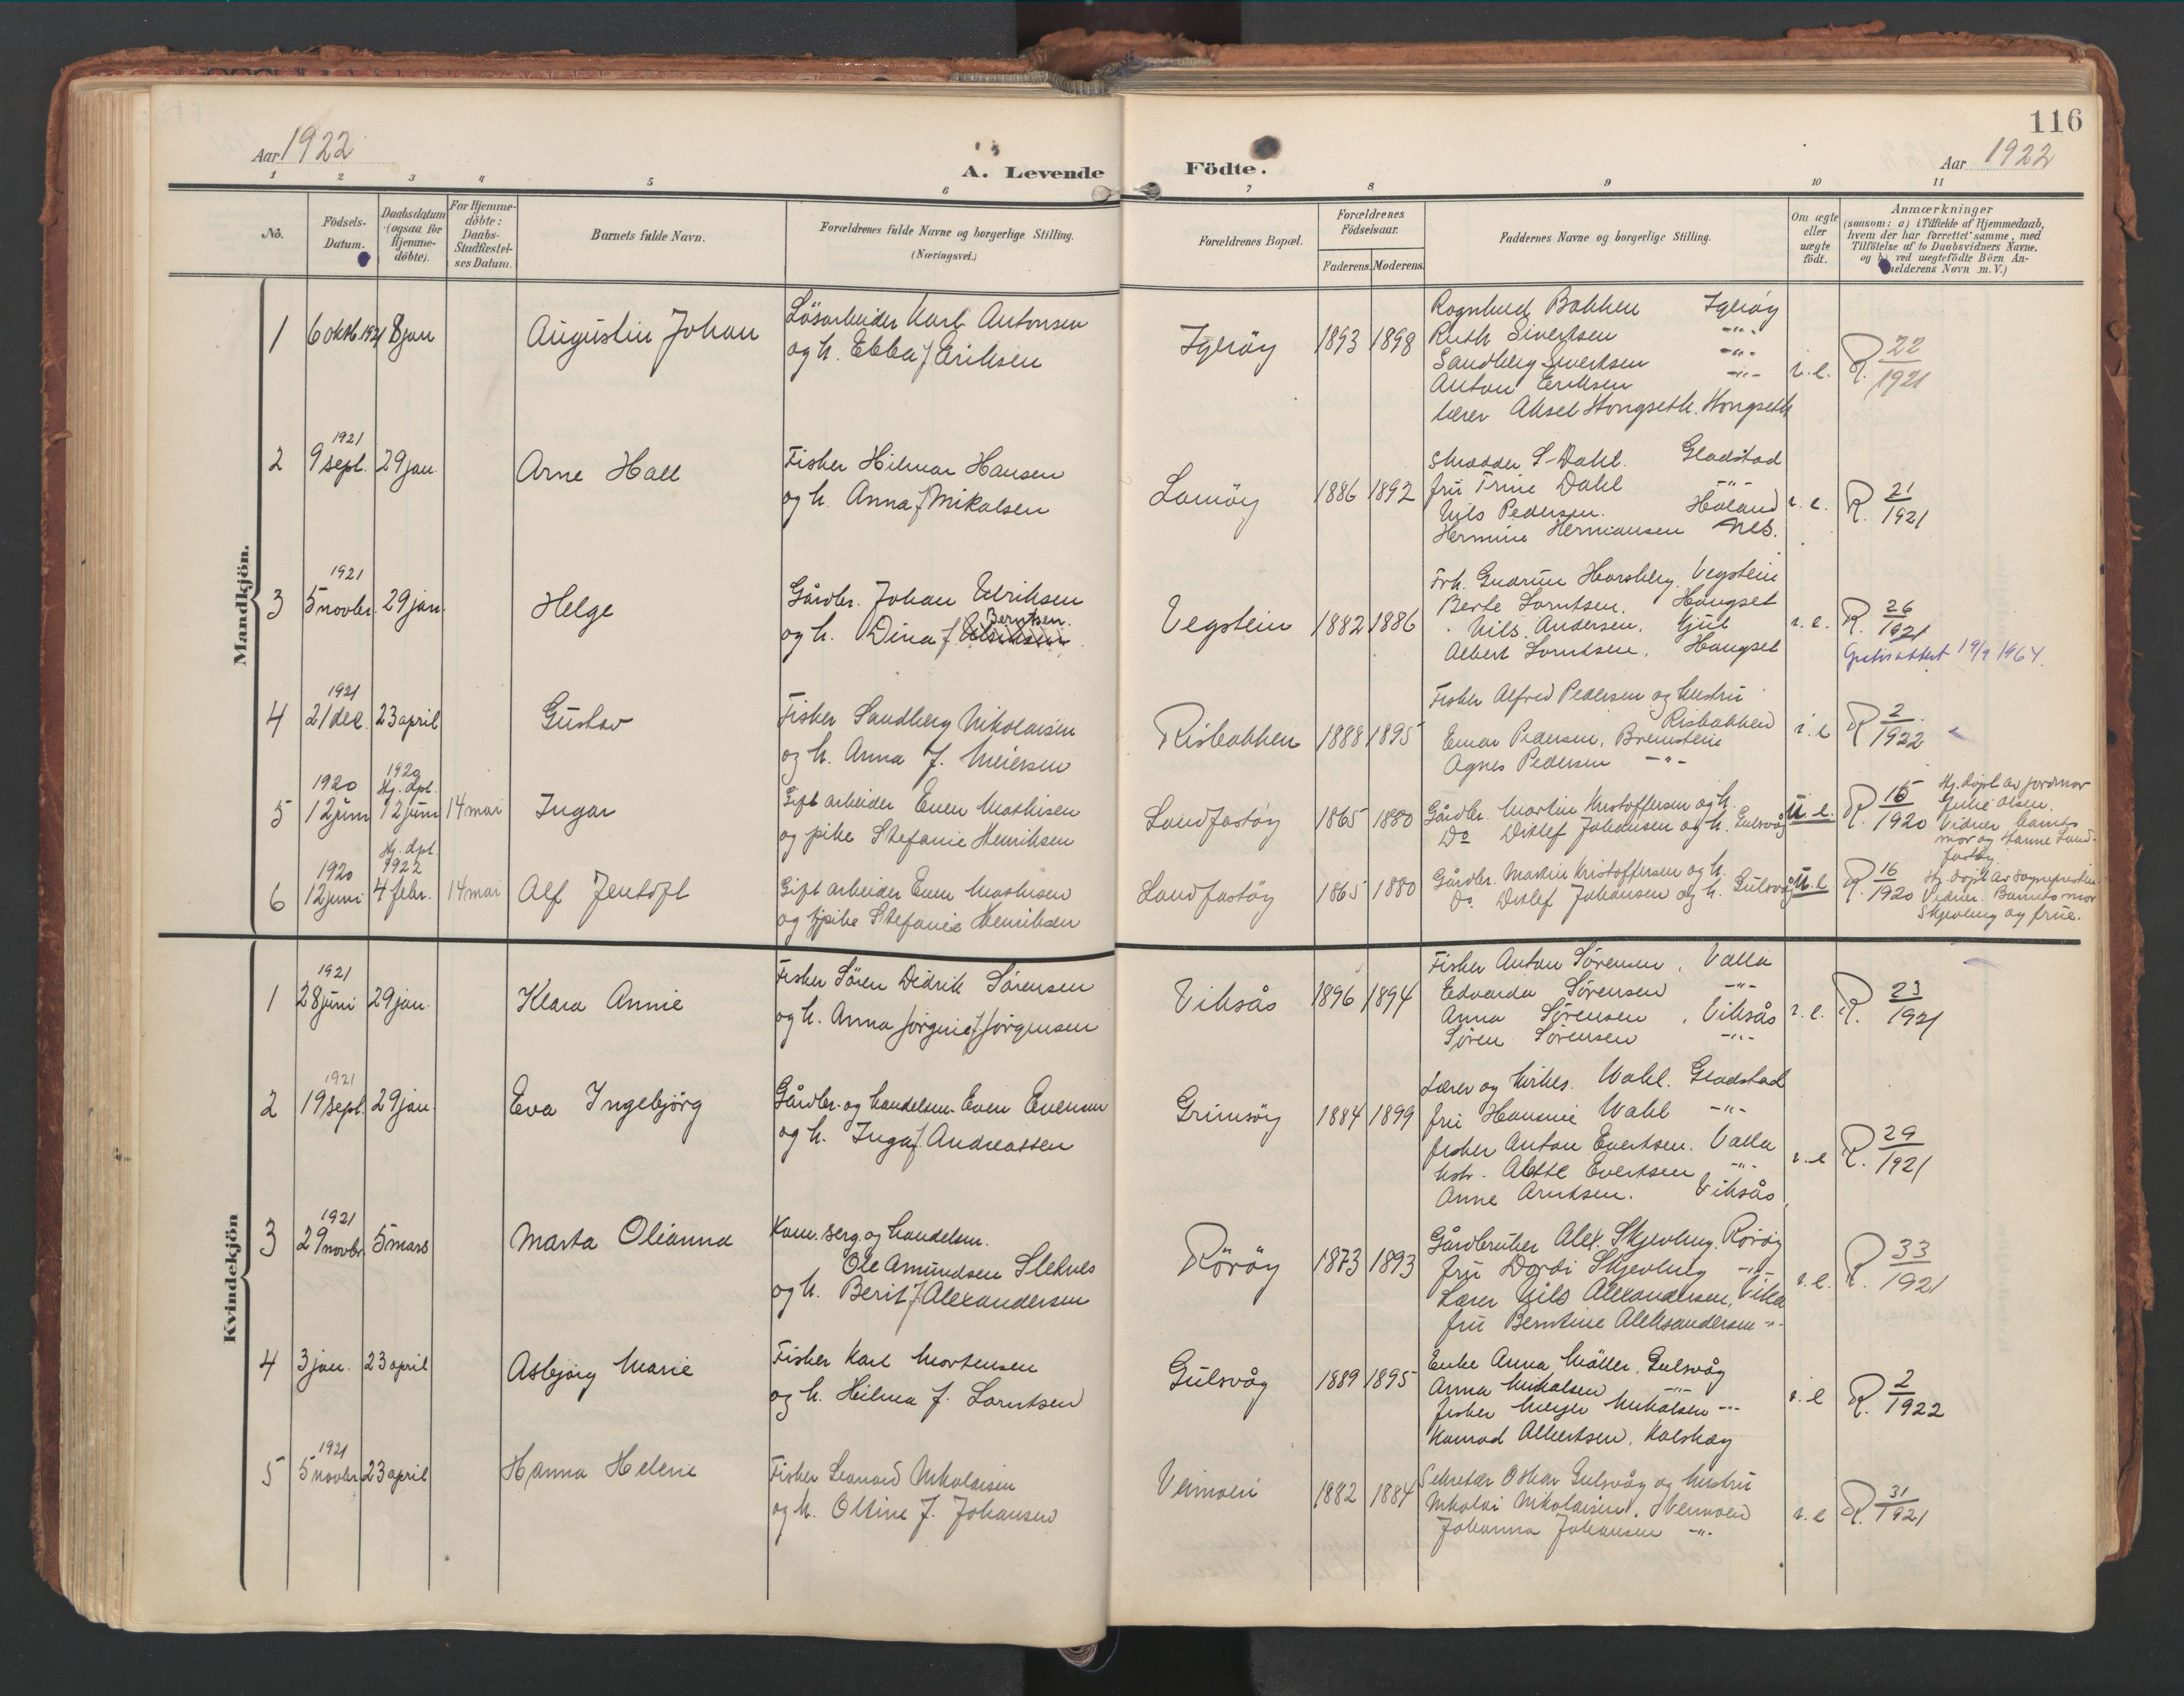 116
Aar 1922
A. Levende Födte.
Aar 1922
1 2 3 4 5 6 7 8 9 10 11
No.
Födsels-Datum.
Daabsdatum (ogsaa for Hjemme-döbte).
For Hjemme-döbte: Daabs-Stadfæstel-ses Datum.
Barnets fulde Navn.
Forældrenes fulde Navne og borgerlige Stilling. (Næringsvei.)
Forældrenes Bopæl.
Forældrenes Födselsaar.
Faderens. Moderens.
Faddernes Navne og borgerlige Stilling.
Om ægte eller uægte födt.
Anmærkninger
(saasom: a) i Tilfælde af Hjemmedaab,
hvem der har forrettet samme, med
Tilföielse af to Daabsvidners Navne,
og b) ved uægtefödte Börn An-
melderens Navn m. V.)
Mandkjön.
1 6 oktb. 1921 8 jan Augustin Johan
Lösarbeider Karl Antonsen
og h. Ebba f. Eriksen
Igeröy 1893 1898
Ragnhild Bakken Igeröy
Ruth Sivertsen -"-
Sandberg Sivertsen -"-
Anton Eriksen -"-
lærer Aksel Hongseth. Hongseth
i.e. R. 22/1921
2 1921 9 sept. 29 jan. Arne Hall
Fisker Hilmar Hansen
og h. Anna f. Mikalsen
Lamöy 1886 1892
Skrædder S. Dahl. Gladstad
fru Trine Dahl -"-
Nils Pedersen. Höland
Hermine Hermansen Nes.
i.e. R. 21/1921
3 1921 5 novbr. 29 jan. Helge
Gårdbr. Johan Edriksen
Berntsen.
og h. Dina f.
Vegstein 1882 1886
Frk. Gudrun Horsberg. Vegstein
Berte Lorntsen. Hongset
Nils Andersen. Kjul
Albert Lorntsen. Hongset
i.e. R. 26/1921
Gratisattest 19/9 1964.
4 1921 21 dec. 23 april Gustav
Fisker Sandberg Nikolaisen
og h. Anna f. Meiersen
Risbakken 1888 1895
Fisker Alfred Pedersen og hustru
Risbakken
Einar Pedersen, Bremstein
Agnes Pedersen -"-
i.e R 2/1922
5 1920 12 juni 1920 Hj. dpt. 12 juni 14 mai Ingar
Gift arbeider Even Mathisen
og pike Stefanie Henriksen
Sandfastöy 1865 1880
Gårdbr. Martin Kristoffersen og h.
Do Ditlef Johansen og h. Gulsvåg
U.e. R. 15/1920
Hj. döpt av jordmor
Julie Olsen.
Vidner barnets
mor og Hanne Sand-
fastöy
6 1920 12 juni Hj. dpt. 1922 4 febr. 14 mai Alf Jentoft
Gift arbeider Even Mathisen
og pike Stefanie Henriksen
Sandfastöy 1865 1880
Gårdbr. Martin Kristoffersen og h.
Do. Ditlef Johansen og h. Gulsvåg
U.e R. 16/1920
Hj. döpt av sogneprestin
Vidner. Barnets mor
Skjevling og frue.
Kvindekjön
1 1921 28 juni 29 jan. Klara Annie
Fisker Sören Didrik Sörensen
og h. Anna Jörgine f. Jörgensen
Viksås 1896 1894
Fisker Anton Sörensen, Valla
Edvarda Sörensen -"-
Anna Sörensen, Viksås
Sören Sörensen -"-
i.e. R. 23/1921
2 1921 19 sept. 29 jan. Eva Ingebjörg
Gårdbr. og handelsm. Even Evensen
og h. Inga f. Andreassen
Grimsöy 1884 1899
Lærer og kirkes. Wahl. Gladstad
fru Hansine Wahl -"-
fisker Anton Evertsen. Valla
hstr. Alette Evertsen -"-
Anne Arntsen. Viksås
i.e R. 29/1921
3 1921 29 novbr. 5 mars Marta Olianna
Kom. serg. og handelsm.
Ole Amundsen Sleknes
og h. Berit f. Alexandersen
Röröy 1873 1893
Gårdbruker Alex. Skjevling. Röröy
fru Dordi Skjevling -"-
Lærer Nils Alexandersen, Vika
fru Berntine Aleksandersen -"-
i.e. R. 33/1921
4 3 jan. 23 april Asbjörg Marie
Fisker Karl Mortensen
og h. Hilma f. Lorntsen
Gulsvåg 1889 1895
Enke Anna Möller. Gulsvåg
Anna Mikalsen -"-
fisker Meyer Mikalsen -"-
Konrad Albertsen. Kalskag
i.e R. 2/1922
5 1921 5 novbr 23 april Hanna Helene
Fisker Leonard Nikolaisen
og h. Ottine f. Johansen
Vennoen 1882 1884
Sekretær Oskar Gulsvåg og hustru
Nikolai Nikolaisen, Vennoen
Johanna Johansen -"-
i.e R. 31/1921